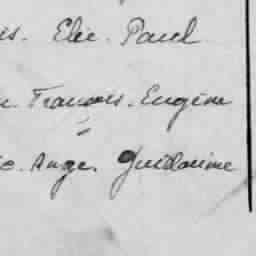 Elie. Paul
François. Eugène
Ange. Guillaume